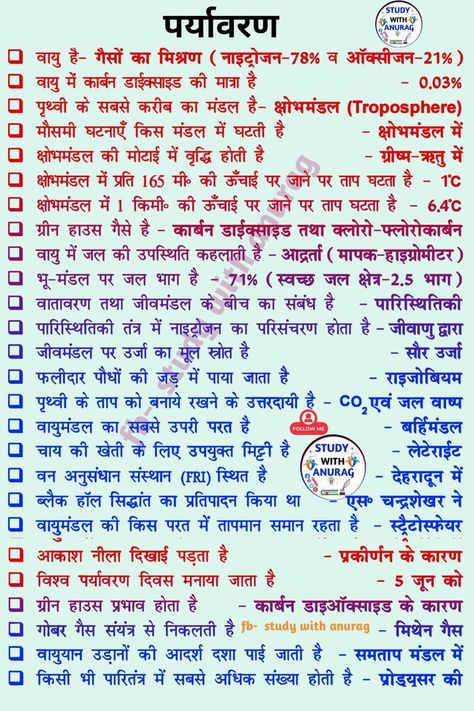 पर्यावरण
STUDY
WITH
ANURAG
वायु है- गैसों का मिश्रण ( नाइट्रोजन-78% व ऑक्सीजन-21% )
वायु में कार्बन डाईक्साइड की मात्रा है - 0.03%
पृथ्वी के सबसे करीब का मंडल है- क्षोभमंडल (Troposphere)
मौसमी घटनाएँ किस मंडल में घटती है - क्षोभमंडल में
क्षोभमंडल की मोटाई में वृद्धि होती है - ग्रीष्म-ऋतु में
क्षोभमंडल में प्रति 165 मी० की ऊँचाई पर जाने पर ताप घटता है - 1℃
क्षोभमंडल में 1 किमी० की ऊँचाई पर जाने पर ताप घटता है - 6.4℃
ग्रीन हाउस गैसे है - कार्बन डाईक्साइड तथा क्लोरो-फ्लोरोकार्बन
वायु में जल की उपस्थिति कहलाती है - आद्रर्ता ( मापक-हाइग्रोमीटर )
भू-मंडल पर जल भाग है - 71% ( स्वच्छ जल क्षेत्र-2.5 भाग )
वातावरण तथा जीवमंडल के बीच का संबंध है - पारिस्थितिकी
पारिस्थितिकी तंत्र में नाइट्रोजन का परिसंचरण होता है - जीवाणु द्वारा
जीवमंडल पर उर्जा का मूल स्त्रोत है - सौर उर्जा
फलीदार पौधों की जड़ में पाया जाता है - राइजोबियम
पृथ्वी के ताप को बनाये रखने के उत्तरदायी है - CO₂ एवं जल वाष्प
वायुमंडल का सबसे उपरी परत है - बर्हिमंडल
FOLLOW ME
चाय की खेती के लिए उपयुक्त मिट्टी है - लेटेराईट
STUDY
WITH
ANURAG
वन अनुसंधान संस्थान (FRI) स्थित है - देहरादून में
ब्लैक हॉल सिद्धांत का प्रतिपादन किया था - एस० चन्द्रशेखर ने
वायुमंडल की किस परत में तापमान समान रहता है - स्ट्रैटोस्फेयर
fb- study with anurag
आकाश नीला दिखाई पड़ता है - प्रकीर्णन के कारण
विश्व पर्यावरण दिवस मनाया जाता है - 5 जून को
ग्रीन हाउस प्रभाव होता है - कार्बन डाइऑक्साइड के कारण
गोबर गैस संयंत्र से निकलती है - मिथेन गैस
fb- study with anurag
वायुयान उड़ानों की आदर्श दशा पाई जाती है - समताप मंडल में
किसी भी पारितंत्र में सबसे अधिक संख्या होती है - प्रोड्यूसर की